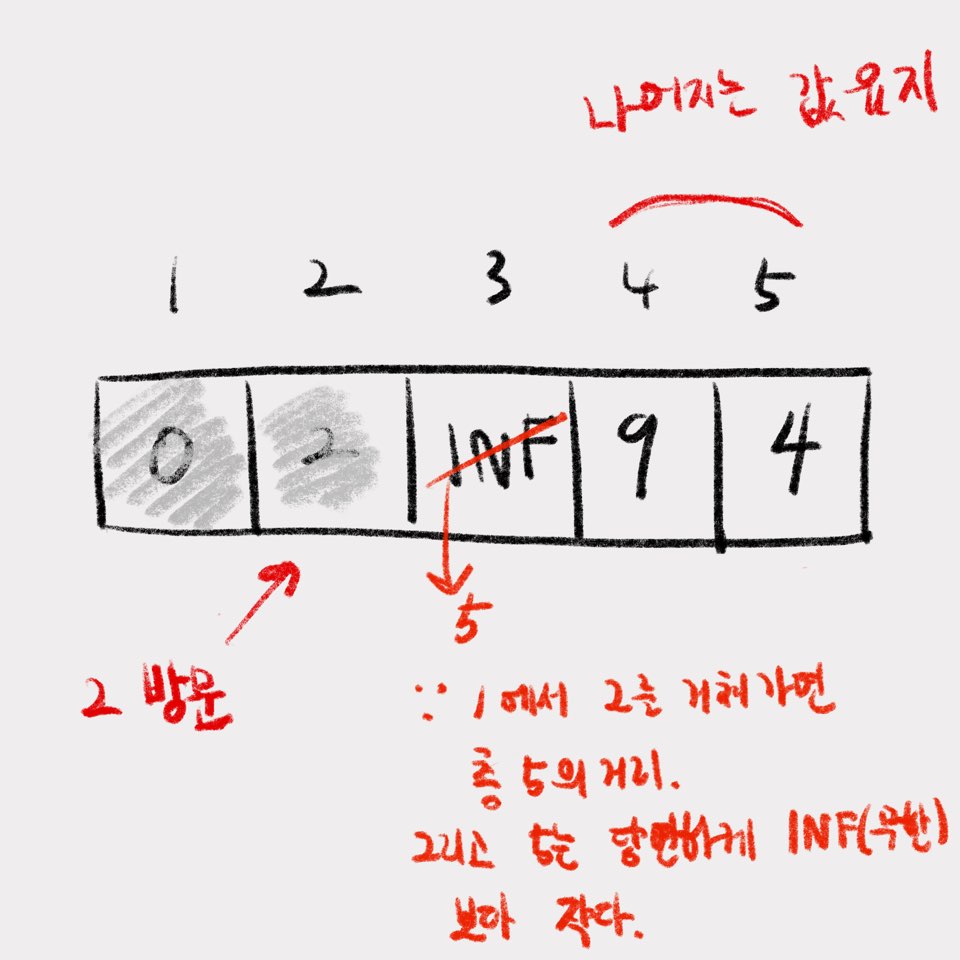 나머지는 값유지
1 2 3 4 5
0 2 INF 9 4
5
2 방문
∵ 1에서 2를 거쳐가면
총 5의 거리.
그리고 5는 당연하게 INF(무한)
보다 작다.